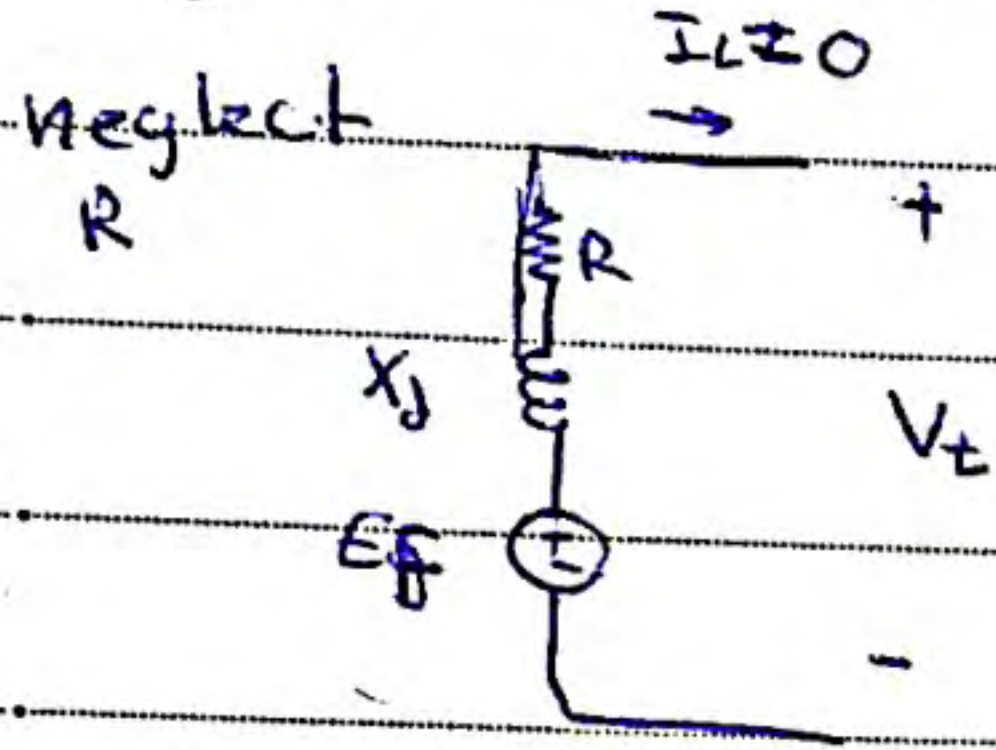 IL=0
neglect
R
+
R
Xd
Vt
Ef
+
-
-